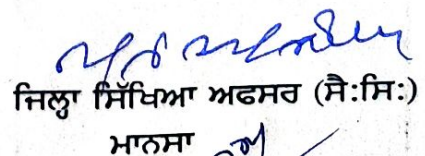 ਜਿਲ੍ਹਾ ਸਿੱਖਿਆ ਅਫਸਰ (ਸੈ:ਸਿ:)
ਮਾਨਸਾ